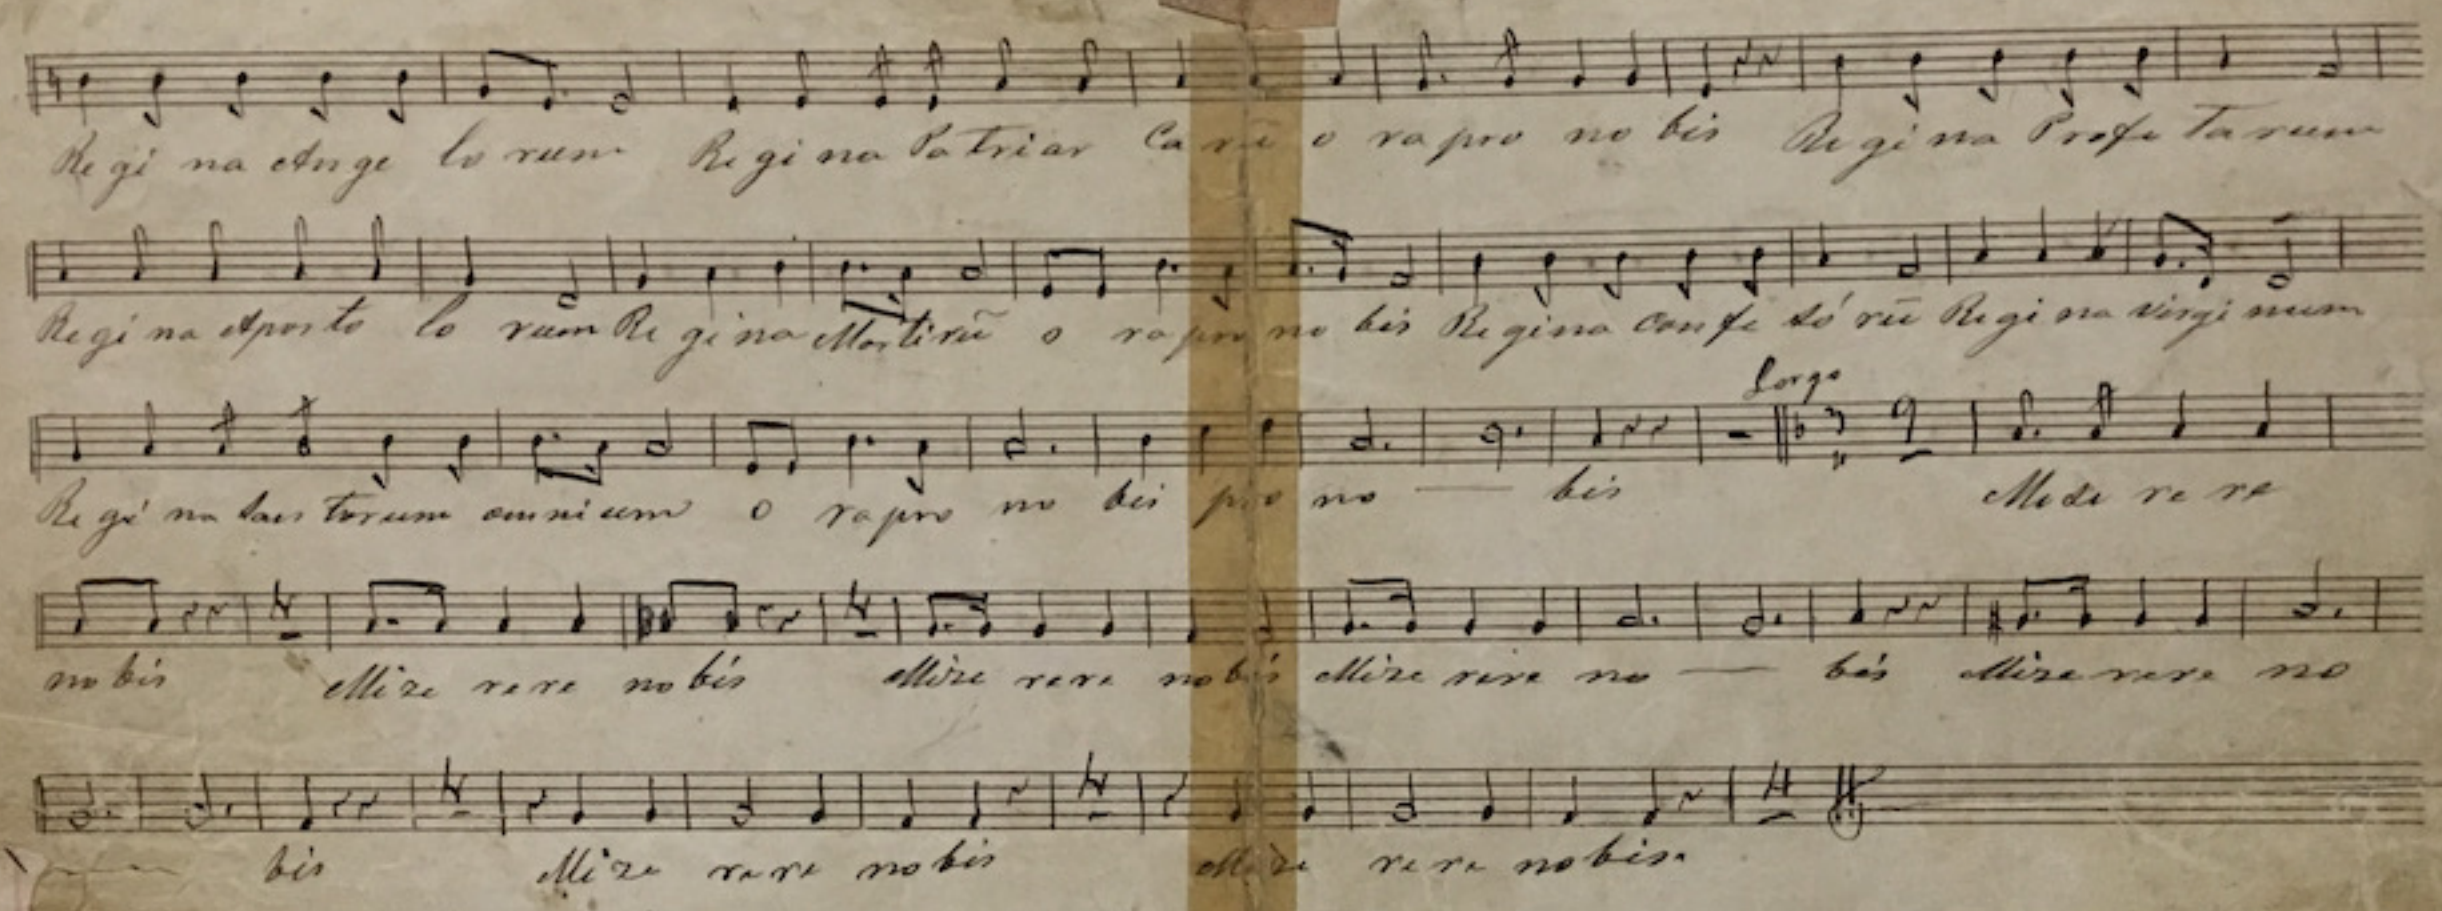 Regi na Ange lo rum Regi na Patriar Ca rū o ra pro no bis Regi na Profe ta rum
Regi na Aposto lo rum Re gina Martirū o ra pro no bis Regina confe só rū Regi na virgi num
Largo
Regi na san torum omnium o ra pro no bis pro no — bis Mize re re
no bis Mize re re no bis Mize re re no bis Mize rere no — bis Mize rere no
— bis Mize re re no bis Mize re re no bis.